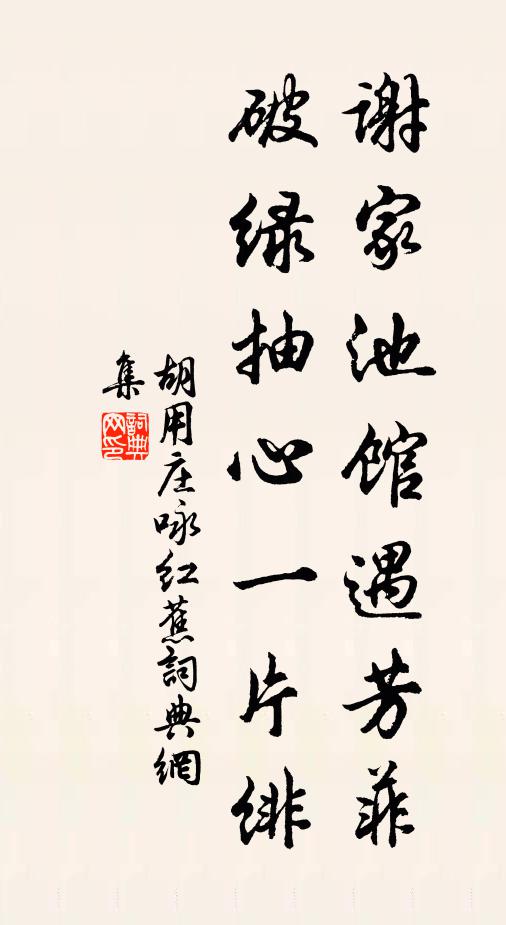 谢家池馆遇芳菲
破绿抽心一片绯
胡用庄咏红蕉詞典網
集
詞典网印